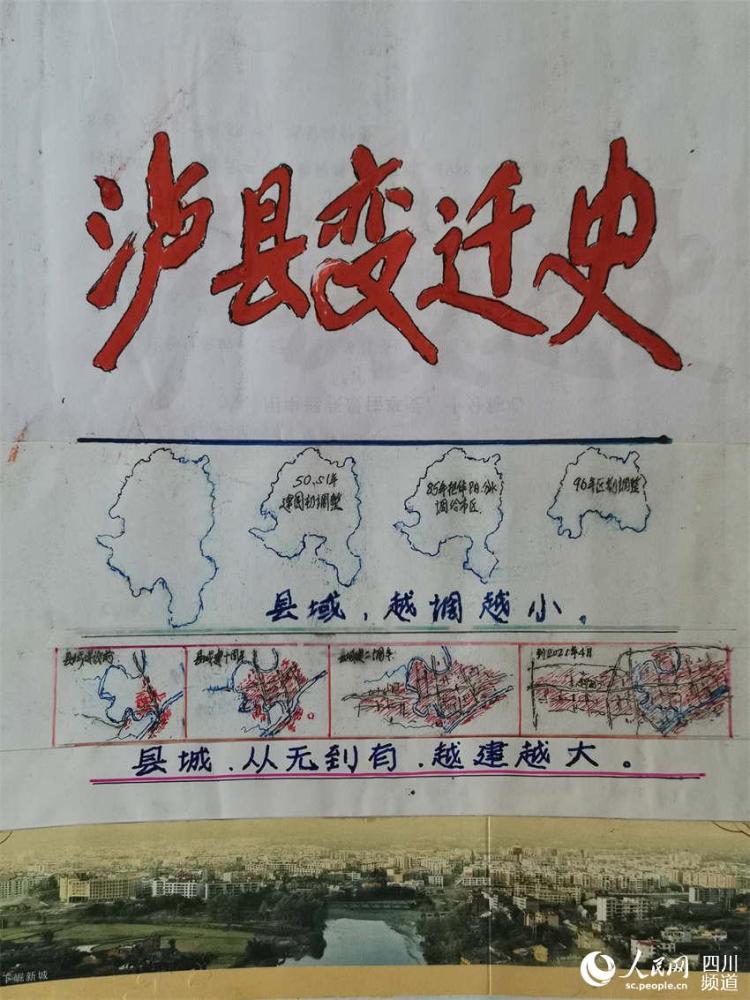 泸县变迁史
50、51年
建国初调整
85年把伴阳、分水
调给市区
96年区划调整
县域，越调越小。
县城建设前
县城建十周年
县城建二十周年
到2021年4月
县城、从无到有、越建越大。
千崛新城
人民网 四川频道
sc.people.cn